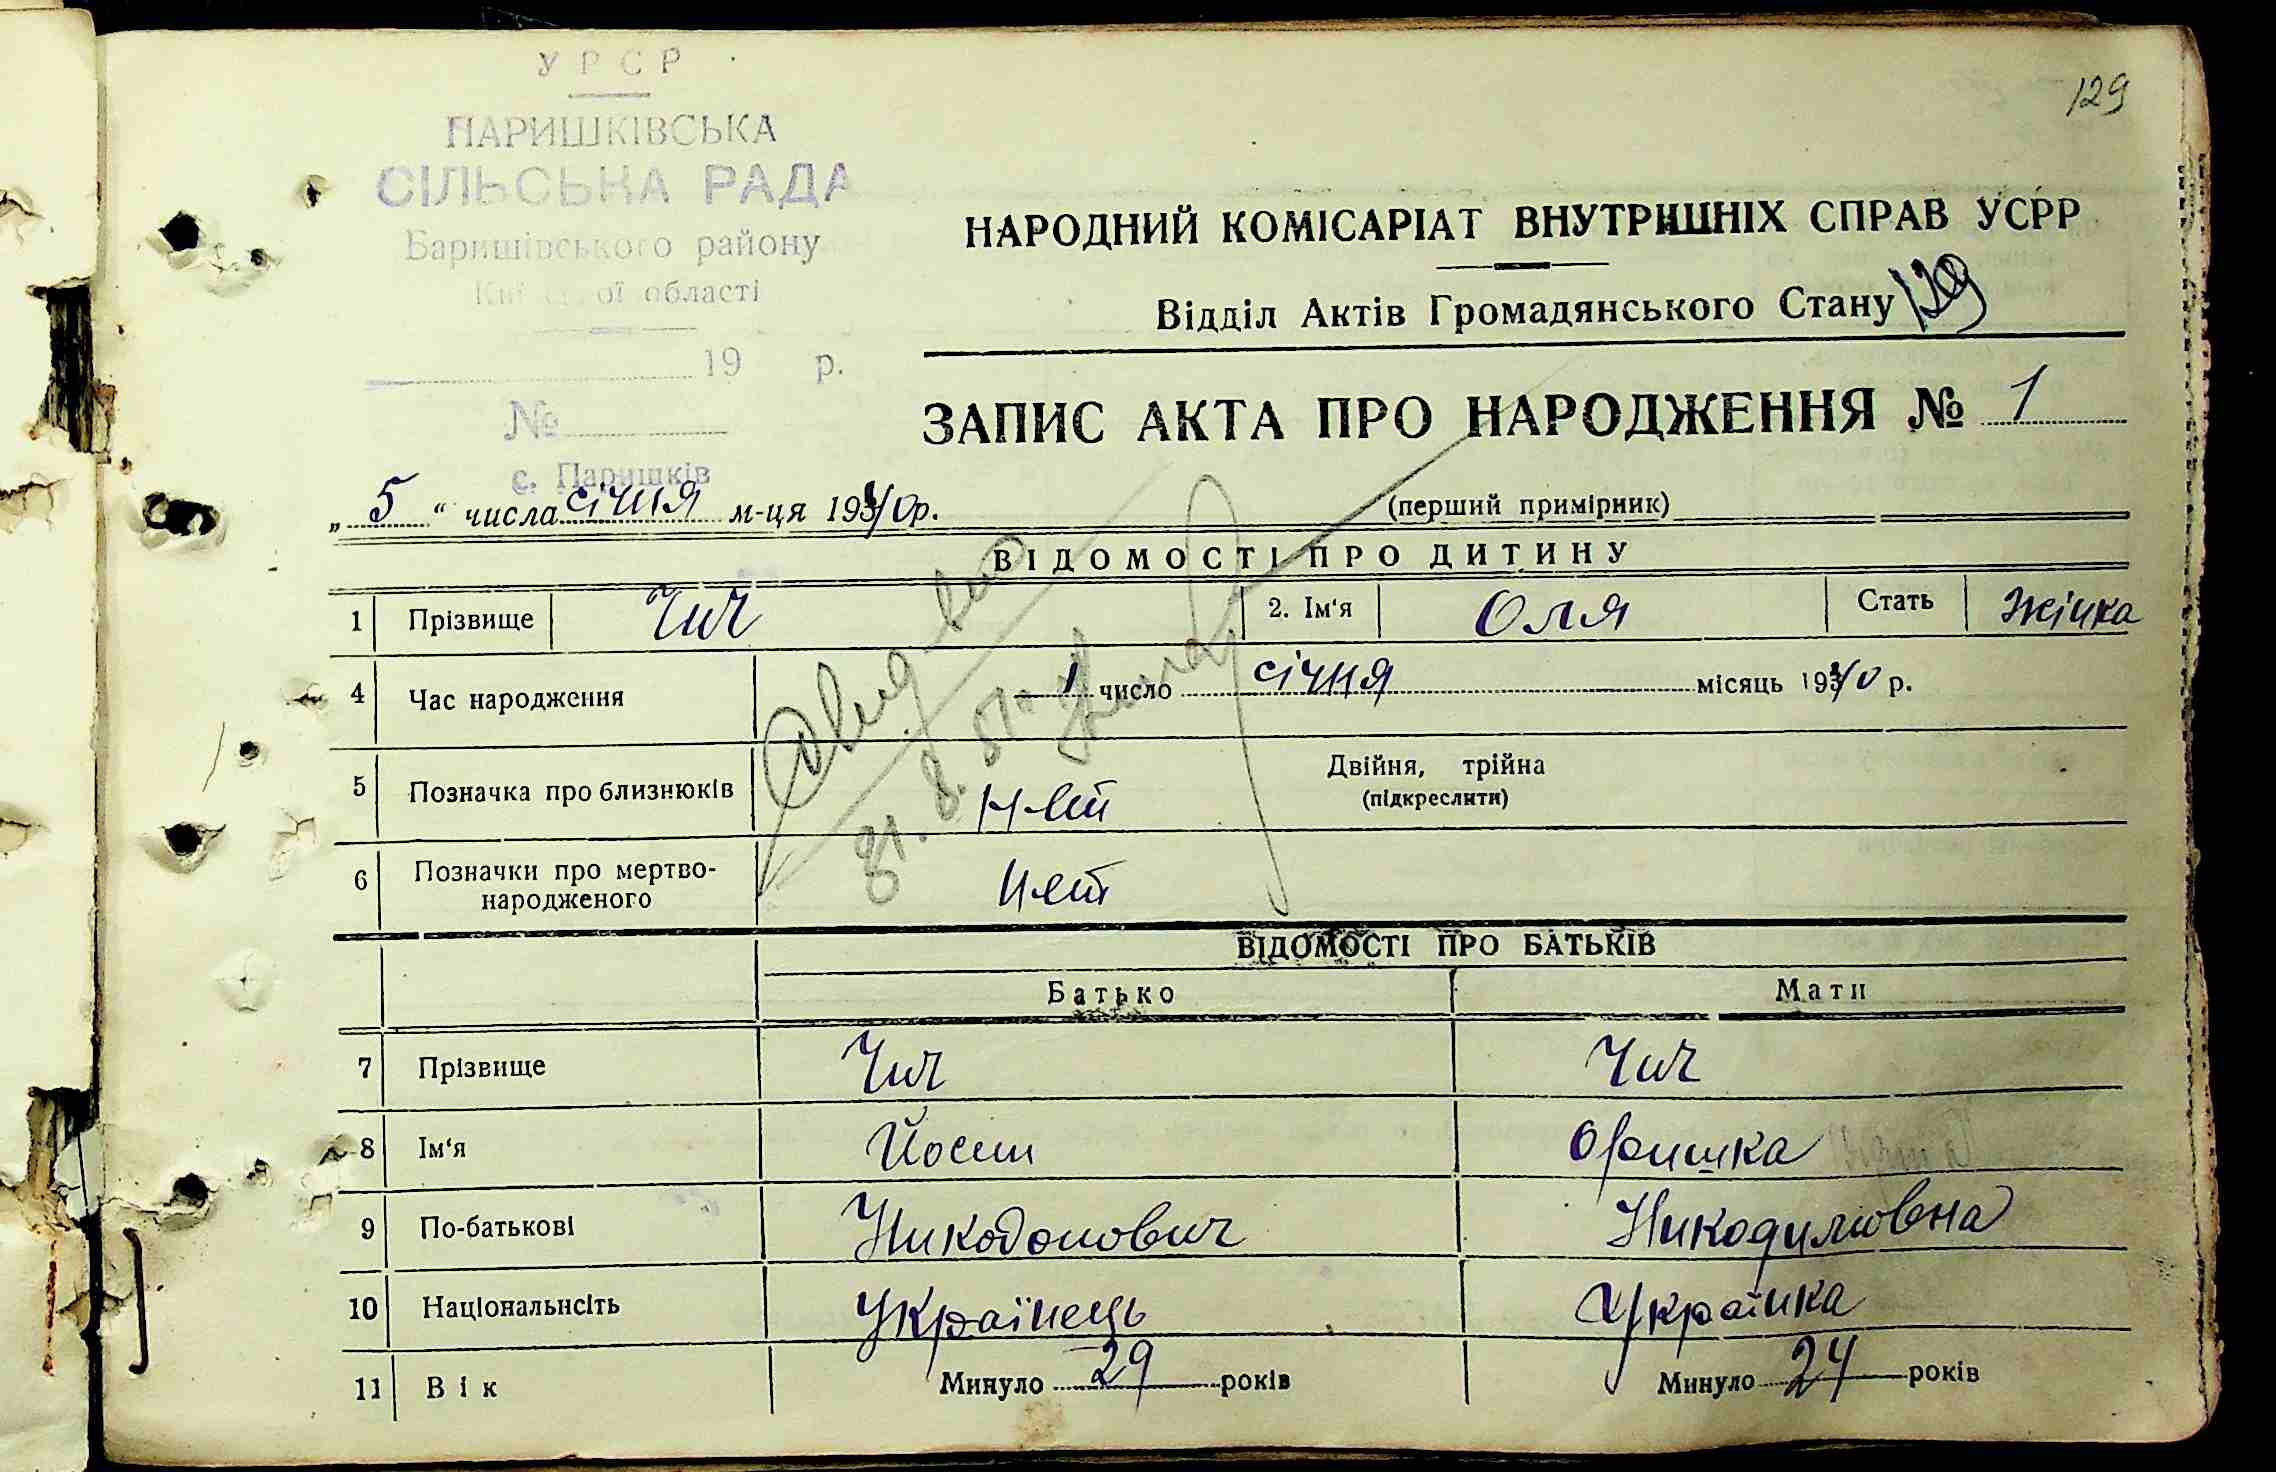 129
УРСР
ПАРИШКІВСЬКА
СІЛЬСЬКА РАДА
Баришівського району
Київської області
19 р.
№
с. Паришків
НАРОДНИЙ КОМІСАРІАТ ВНУТРІШНІХ СПРАВ УСРР
Відділ Актів Громадянського Стану 129
ЗАПИС АКТА ПРО НАРОДЖЕННЯ № 1
„ 5 “ числа січня м-ця 1940 р.
(перший примірник)
ВІДОМОСТІ ПРО ДИТИНУ
1 Прізвище Чич 2. Ім'я Оля Стать Жінка
4 Час народження 1 число січня місяць 1940 р.
5 Позначка про близнюків нет Двійня, трійна
(підкреслити)
6 Позначки про мертво-
народженого нет
ВІДОМОСТІ ПРО БАТЬКІВ
Батько Мати
7 Прізвище Чич Чич
8 Ім'я Йосип Оришка
9 По-батькові Никодомович Никодимовна
10 Національнсіть Українець Українка
11 Вік Минуло 29 років Минуло 24 років